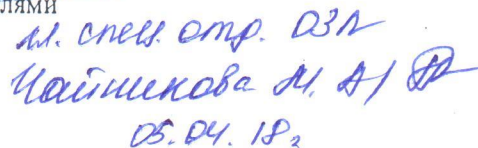 лями
гл. спец. отр. ОЗП
Чайникова М. А/
05.04.18г